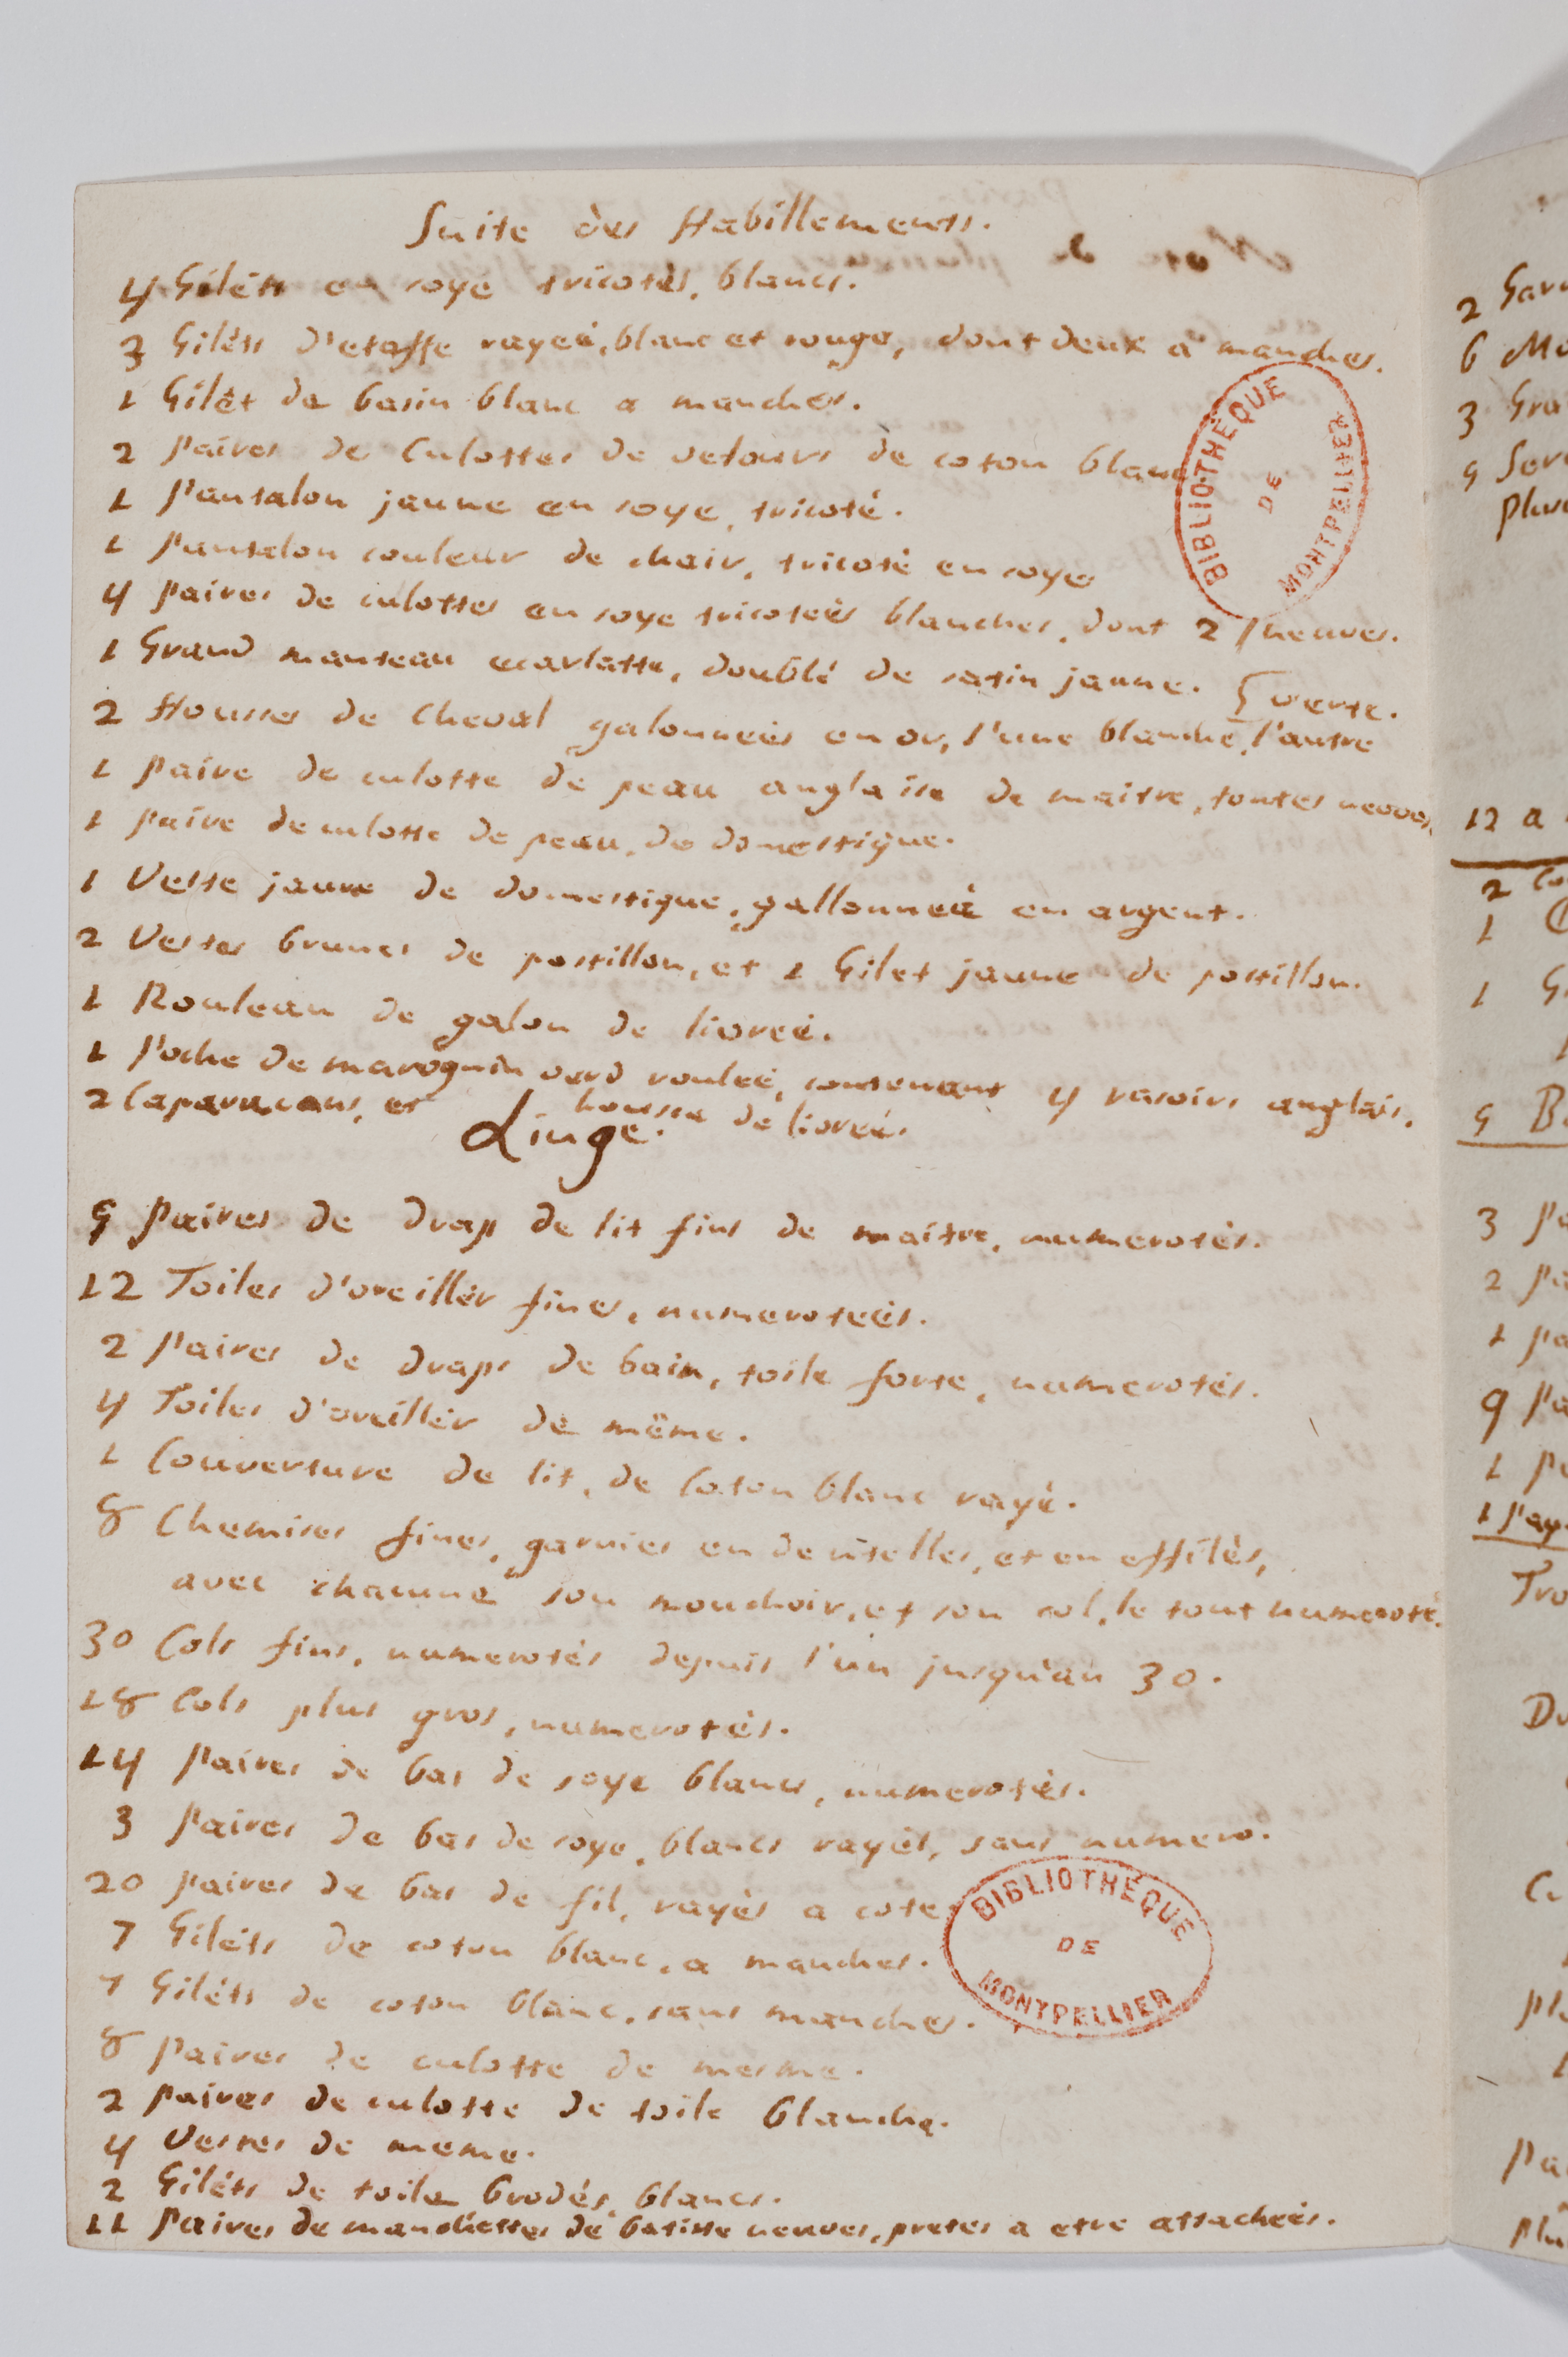 Suite des Habillements.
4 Gilèts en soye tricotès, blancs.
3 Gilèts d'etoffe rayeé, blanc et rouge, dont deux a manches.
1 Gilèt de basin blanc a manches.
2 Paires de Culottes de velours de coton blanc
1 Pantalon jaune en soye, tricoté.
1 Pantalon couleur de chair, tricoté en soye
4 Paires de culottes en soye tricoteès blanches, dont 2 neuves.
1 Grand manteau ecarlatte, doublé de satin jaune.
verte.
2 Housses de Cheval galonneès en or, l'une blanche, l'autre
1 Paire de culotte de peau anglaise de maitre, toutes neuves
1 Paire de culotte de peau, de domestique.
1 Veste jaune de domestique, gallonneé en argent.
2 Vestes brunes de postillon, et 1 Gilet jaune de postillon.
1 Rouleau de galon de livreé.
1 Poche de maroquin verd rouleé, contenant 4 rasoirs anglais.
2 Caparacons, et housse de livreé.
Linge.
9 Paires de drap de lit fins de maître, numerotès.
12 Toiles d'oreillèr fines, numeroteès.
2 Paires de draps de bain, toile forte, numerotés.
4 Toiles d'oreillèr de même.
1 Couverture de lit, de Coton blanc rayé.
8 Chemises fines, garnies en dentelles, et en effilès,
avec chacune son mouchoir, et son col, le tout numeroté.
30 Cols fins, numerotés depuis l'un jusqu'au 30.
18 Cols plus gros, numerotès.
14 Paires de bas de soye blancs, numerotès.
3 Paires de bas de soye, blancs rayès, sans numero.
20 Paires de bas de fil, rayès a cote
7 Gilèts de coton blanc, a manches.
7 Gilèts de coton blanc, sans manches.
8 Paires de culotte de mesme.
2 Paires de culotte de toile blanche.
4 Vestes de meme.
2 Gilèts de toile brodés blancs.
11 Paires de manchettes de batiste neuves, pretes a etre attacheès.
BIBLIOTHÈQUE
DE
MONTPELLIER
BIBLIOTHÈQUE
DE
MONTPELLIER
2
6
3
9
12 a
2
1
1
9
3
2
1
9
1
1